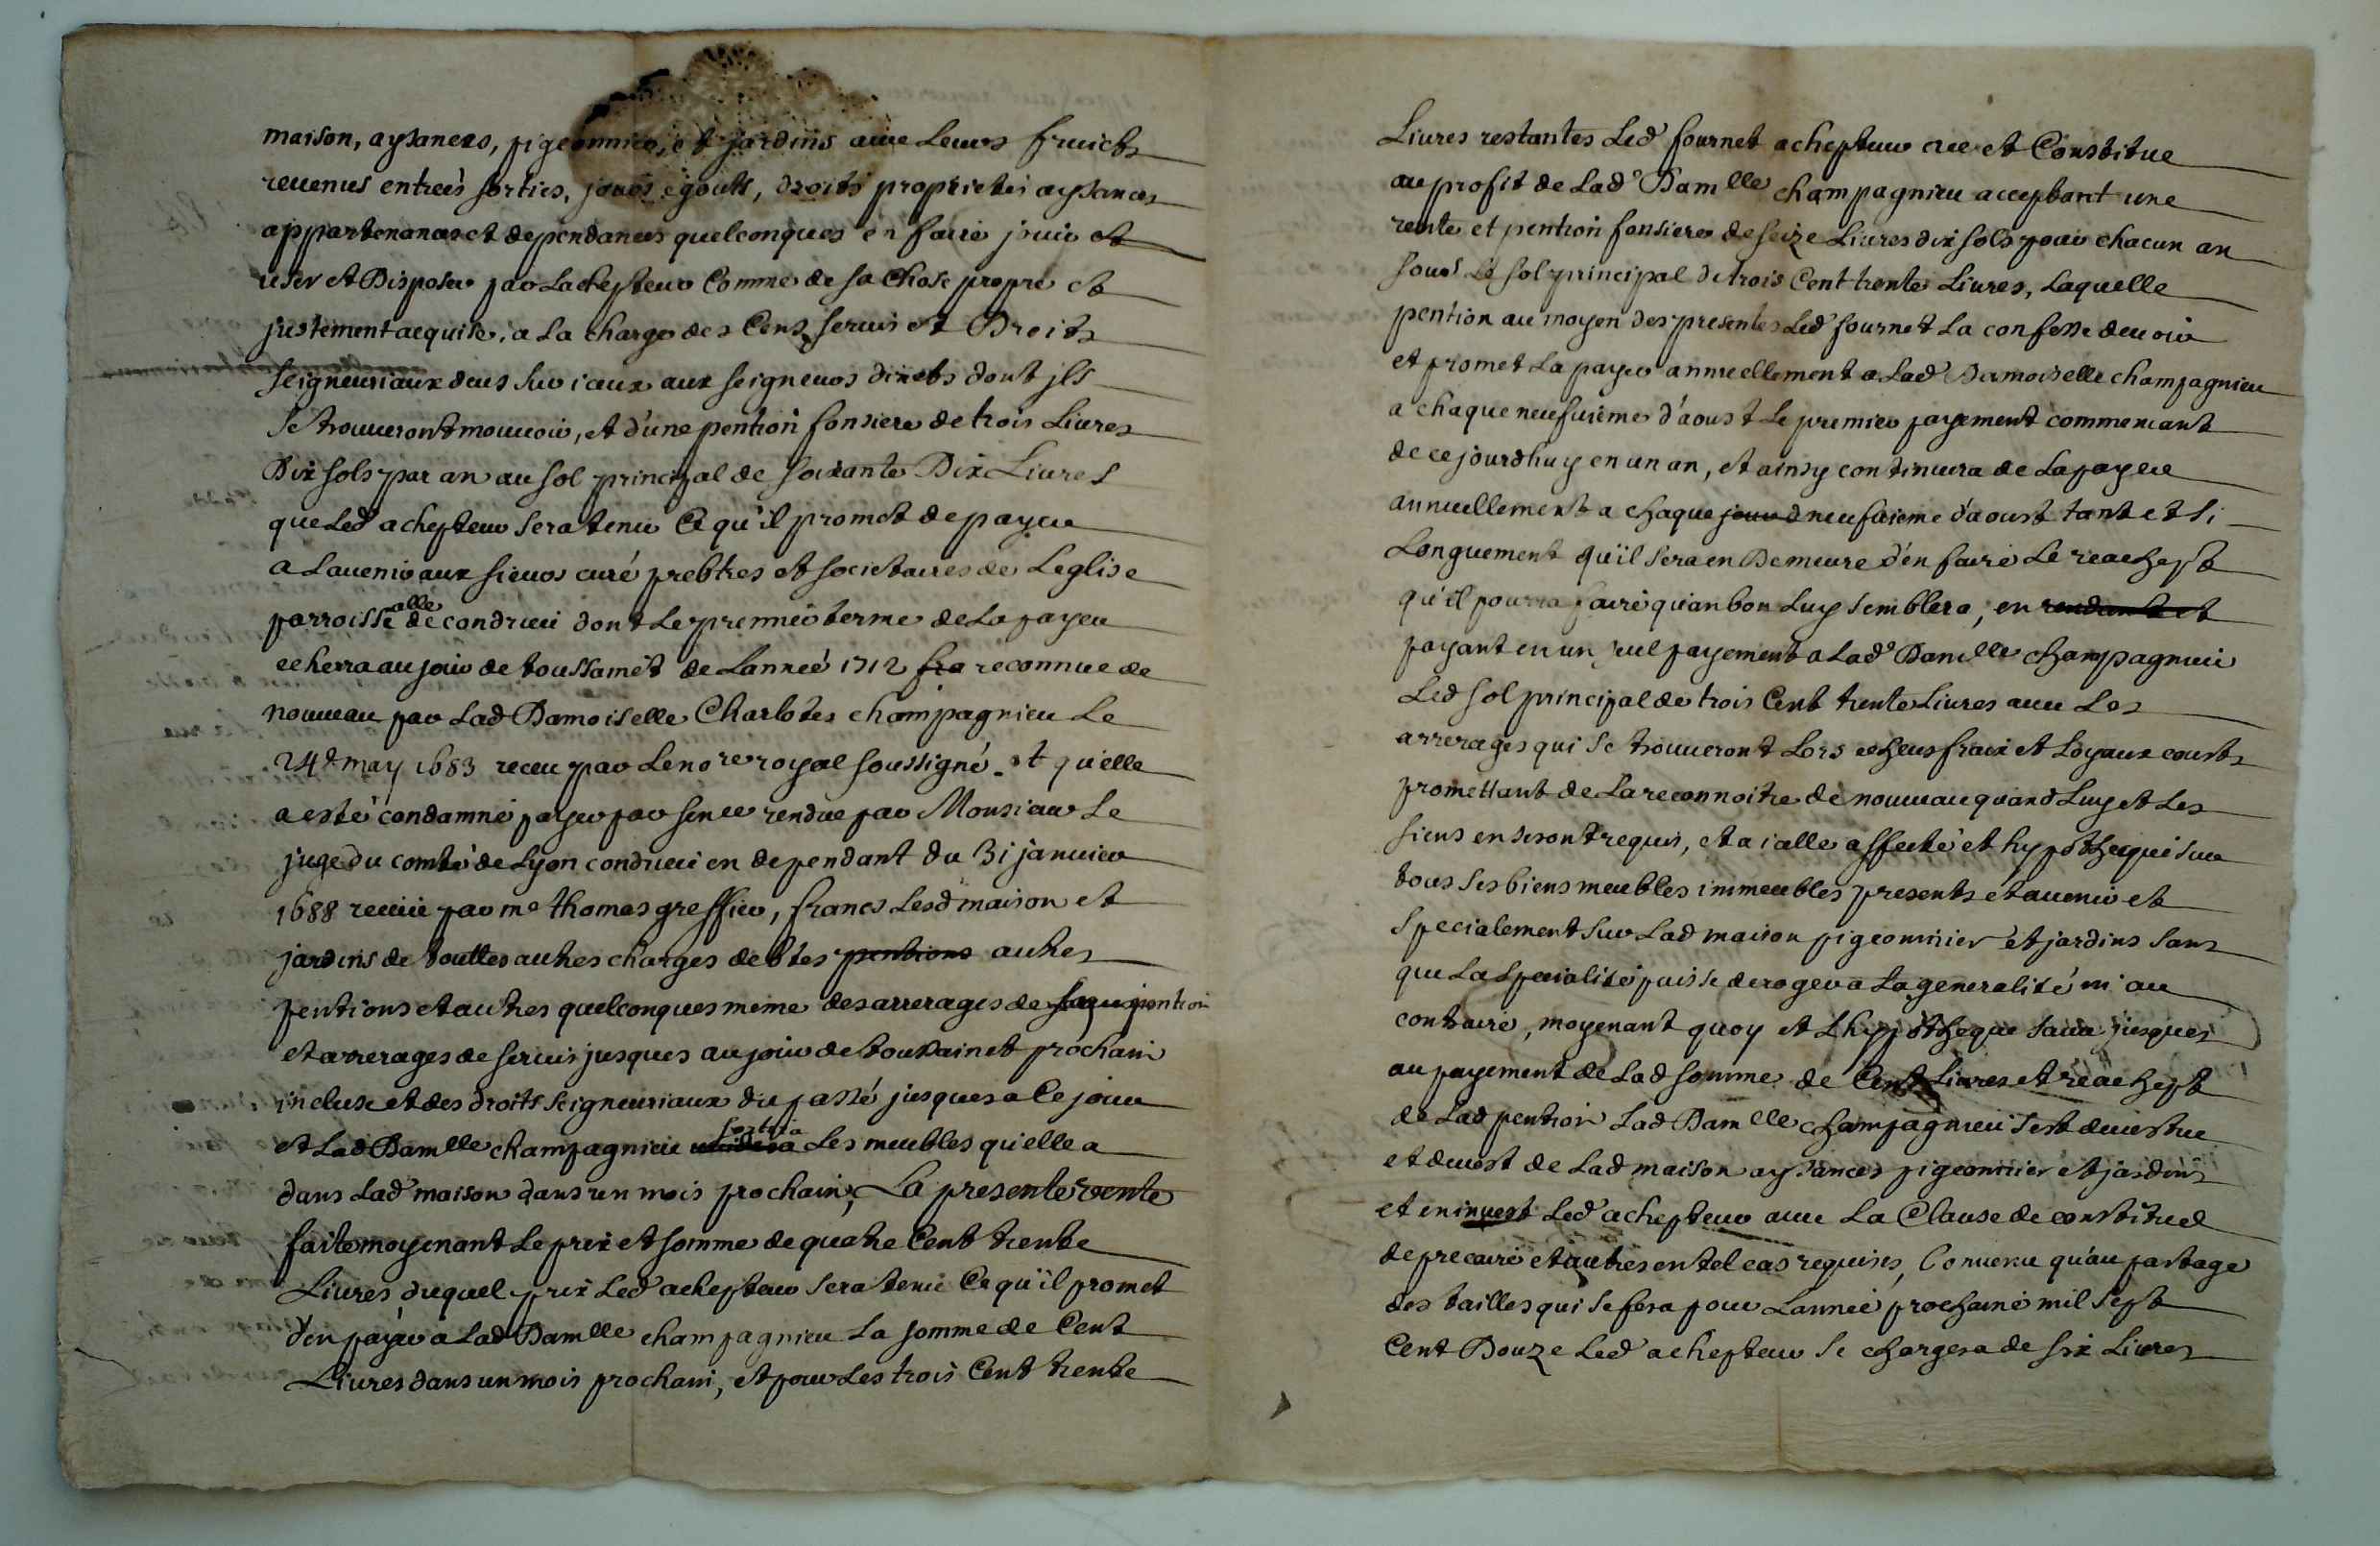 maison, aysances, pigeonnier, et jardins avec leurs fruicts
revenus entreés sorties, jours égouts, droits proprietés aysances
appartenances et dependances quelconques en faire jouir et
user et Disposer par Lachepteur Comme de sa Chose propre et
justement acquise, a La charge des Cens servis et Droits
seigneuriaux deus sur iceux aux seigneurs directs dont jls
se trouveront mouvoir, et d'une pention fonsiere de trois Livres
Dix sols par an au sol principal de soixante Dix Livres
que Led achepteur sera tenu Et qu'il promet de payer
a Lavenir aux sieurs curé prebtres et societaires de Leglise
parroissialle de condrieu dont Le premier terme de La payer
echerra au jour de toussainct de Lanneé 1712 reconnue de
nouveau par Lad Damoiselle Charlotes champagnieu Le
24e may 1683 receu par Le nore royal soussigné. et qu'elle
a esté condamné payer par sence rendue par Monsieur Le
juge du comté de Lyon condrieu en dependant du 31 janvier
1688 receüe par me thomas greffier, francs Lesd maison et
jardins de touttes autres charges debtes pentions autres
pentions et autres quelconques meme des arrerages de pention
et arrerages de servis jusques au jour de toussainct prochain
incluse et des droits seigneuriaux du passé jusques a Ce jour
et Lad Damlle champagnieu sortira Les meubles qu'elle a
dans Lad maison dans un mois prochain, La presente vente
faite moyenant Le prix et somme de quatre Cent trente
Livres, duquel prix Led achepteur sera tenu Ce qu'il promet
d'en payer a Lad Damlle champagnieu La somme de Cent
Livres dans un mois prochain, et pour Les trois Cent trente
Livres restantes Led fournet achepteur cree et Constitue
au profit de Lad Damlle champagnieu acceptant une
rente et pention fonsiere de seize Livres dix sols pour chacun an
sous Le sol principal de trois Cent trente Livres, Laquelle
pention au moyen des presentes Led fournet La confesse devoir
et promet La payer annuellement a Lad Damoiselle champagnieu
a chaque neufvieme d'aoust Le premier payement commencant
de ce jourdhuy en un an, et ainsy continuera de La payer
annuellement a chaque jour d neufvieme d'aoust tant et si
Longuement qu'il sera en Demeure d'en faire Le reachept
qu'il pourra faire quan bon Luy semblera, en rendant et
payant en un seul payement a Lad Damlle champagnieu
Led sol principal de trois Cent trente Livres avec Les
arrerages qui se trouveront Lors echeus fraix et Loyaux cousts
promettant de La reconnoitre de nouveau quand Luy et Les
siens en seront requis, et a icelle affecté et hypothequé sur
tous ses biens meubles immeubles presents et avenir et
specialement sur Lad maison pigeonnier et jardins sans
que La specialité puisse deroger a La generalité ni au
contraire, moyenant quoy et Lhypotheque sauve jusques
au payement de Lad somme de Cent Livres et reachept
de Lad pention Lad Damlle champagnieu s'est devestue
et devest de Lad maison aysances pigeonnier et jardins
et en invest Led achepteur avec La Clause de constitues
de precaire et autres en tel cas requises, Convenu qu'au partage
des tailles qui se fera pour Lanneé prochaine mil sept
Cent Douze Led achepteur se chargera de six Livres